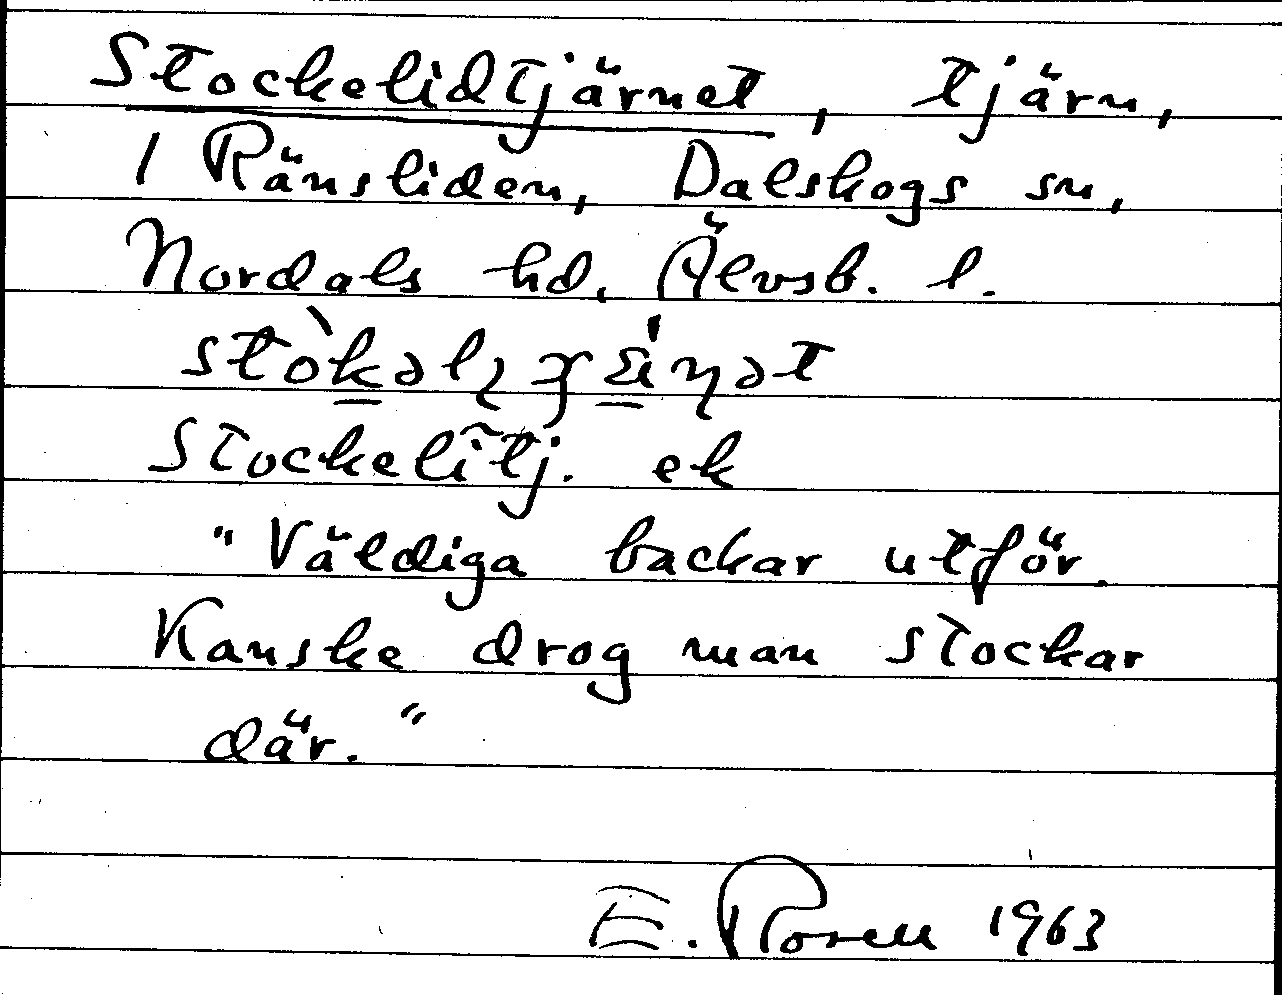 Stockelidtjärnet, tjärn,
1 Ränsliden, Dalskogs sn,
Nordals hd. Älvsb. l.
Stockelĩtj. ek
"Väldiga backar utför.
Kanske drog man stockar
där."
E. Rosen 1963